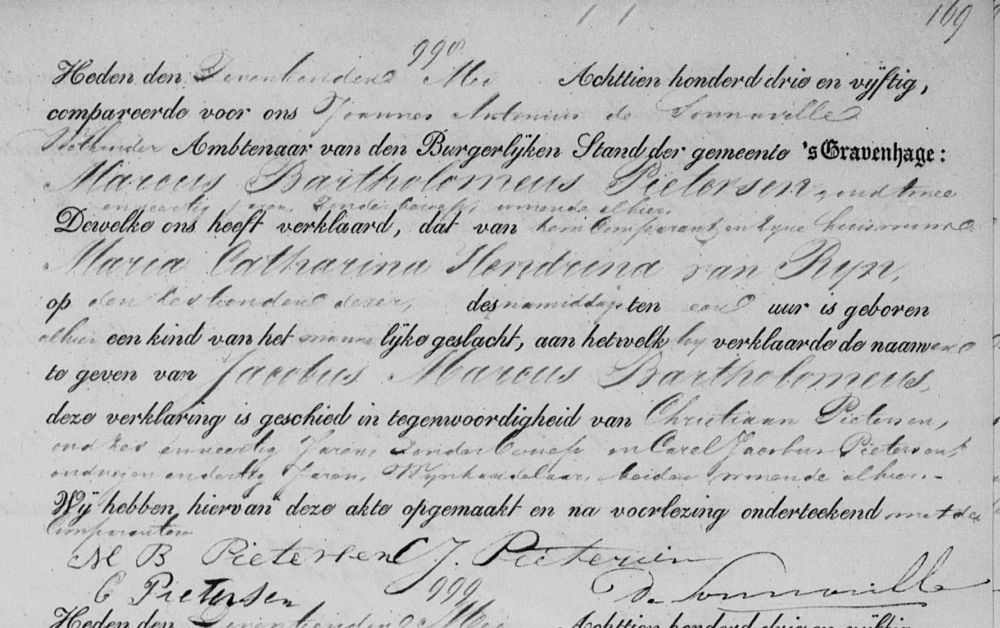 169
998
Heden den Zeventienden Mei Achttien honderd drie en vijftig,
compareerde voor ons Joannes Antonius de Sonnaville
Wethouder Ambtenaar van den Burgerlijken Stand der gemeente 's Gravenhage:
Marcus Bartholomeus Pietersen, oud twee
en veertig jaren, zonder beroep, wonende alhier.
Dewelke ons heeft verklaard, dat van hem Comparant en zijne huisvrouw
Maria Catharina Hendrina van Ryn,
op den zestienden dezer, des namiddags ten een uur is geboren
alhier een kind van het mannelijke geslacht, aan hetwelk hij verklaarde de namen
te geven van Jacobus Marcus Bartholomeus,
deze verklaring is geschied in tegenwoordigheid van Christiaan Pietersen,
oud zes en veertig Jaren, Zonder beroep en Carel Jacobus Pietersen
oud negen en dertig Jaren, Wijnhandelaar, beiden wonende alhier.
Wij hebben hiervan deze akte opgemaakt en na voorlezing onderteekend met de
Comparanten
M B Pietersen C J. Pietersen
C Pietersen 999 De Sonnaville
Heden den Zeventienden Mei Achttien honderd drie en vijftig,